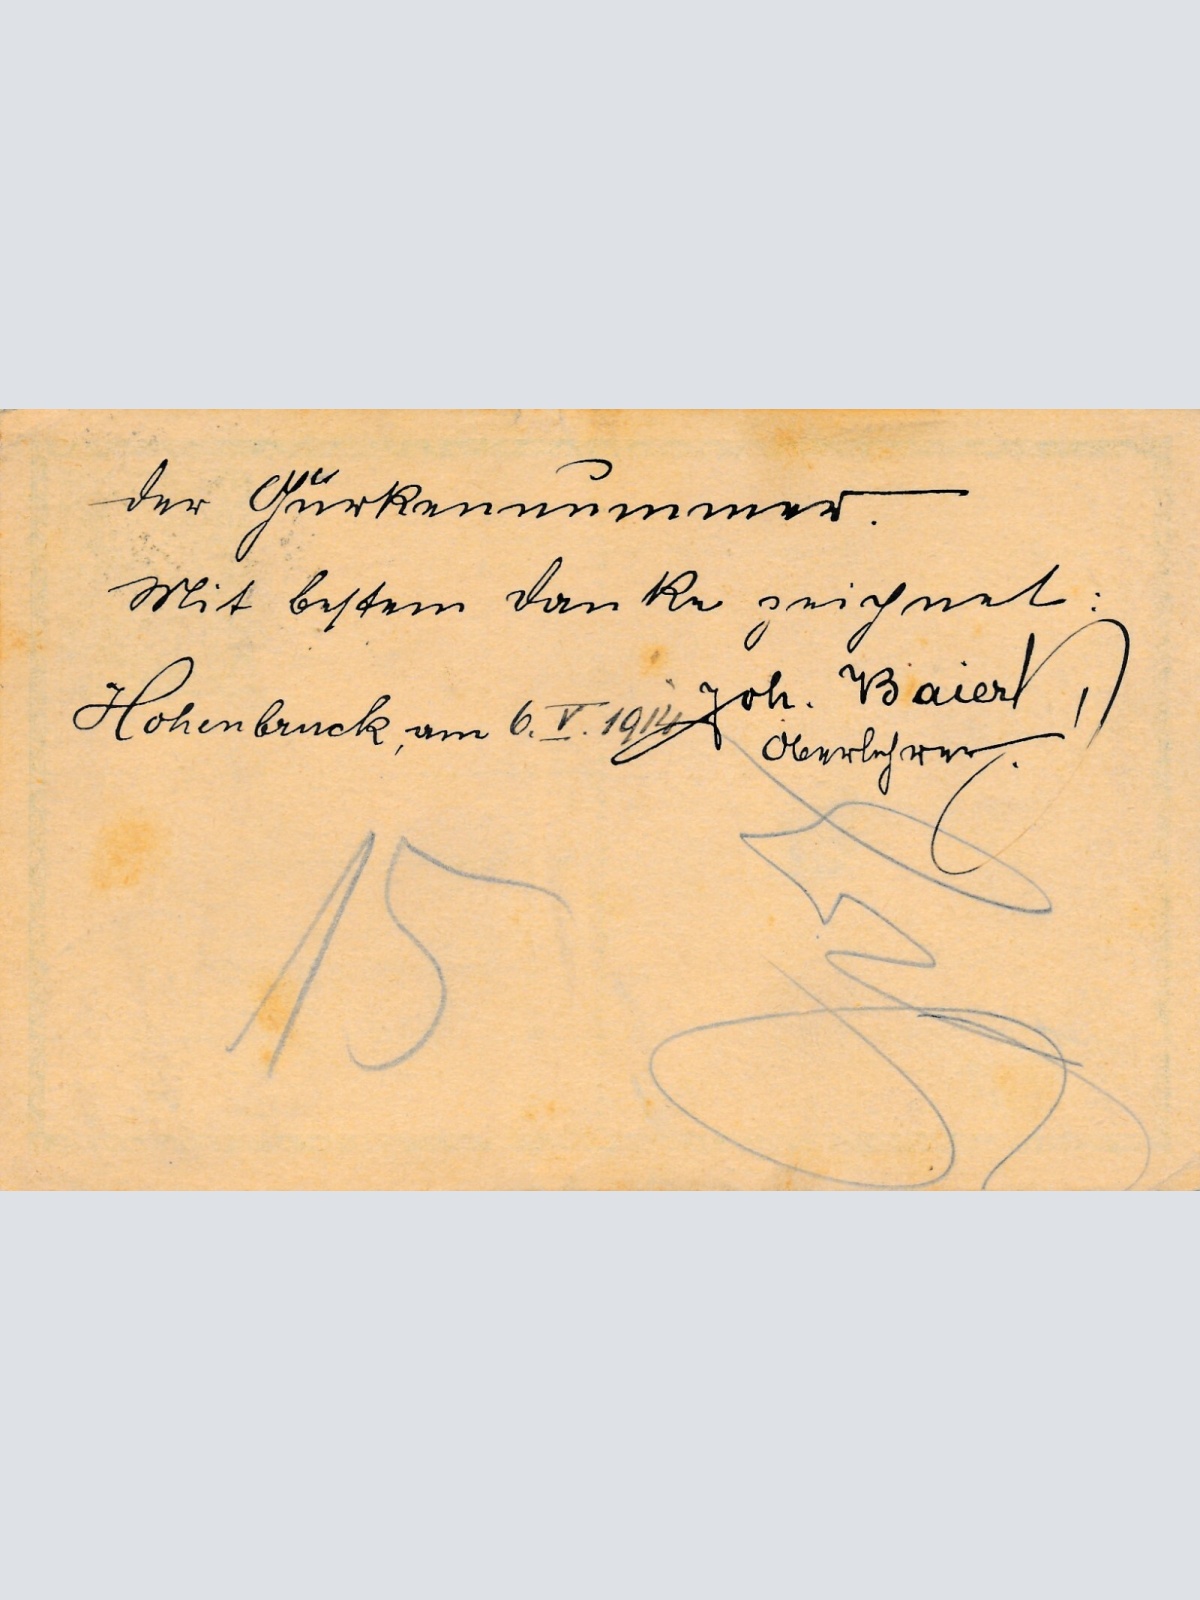 der Gurkennummer.
Mit bestem Danke zeichnet:
Hohenbruck, am 6. V. 1914 Joh. Baierl
Oberlehrer.
15